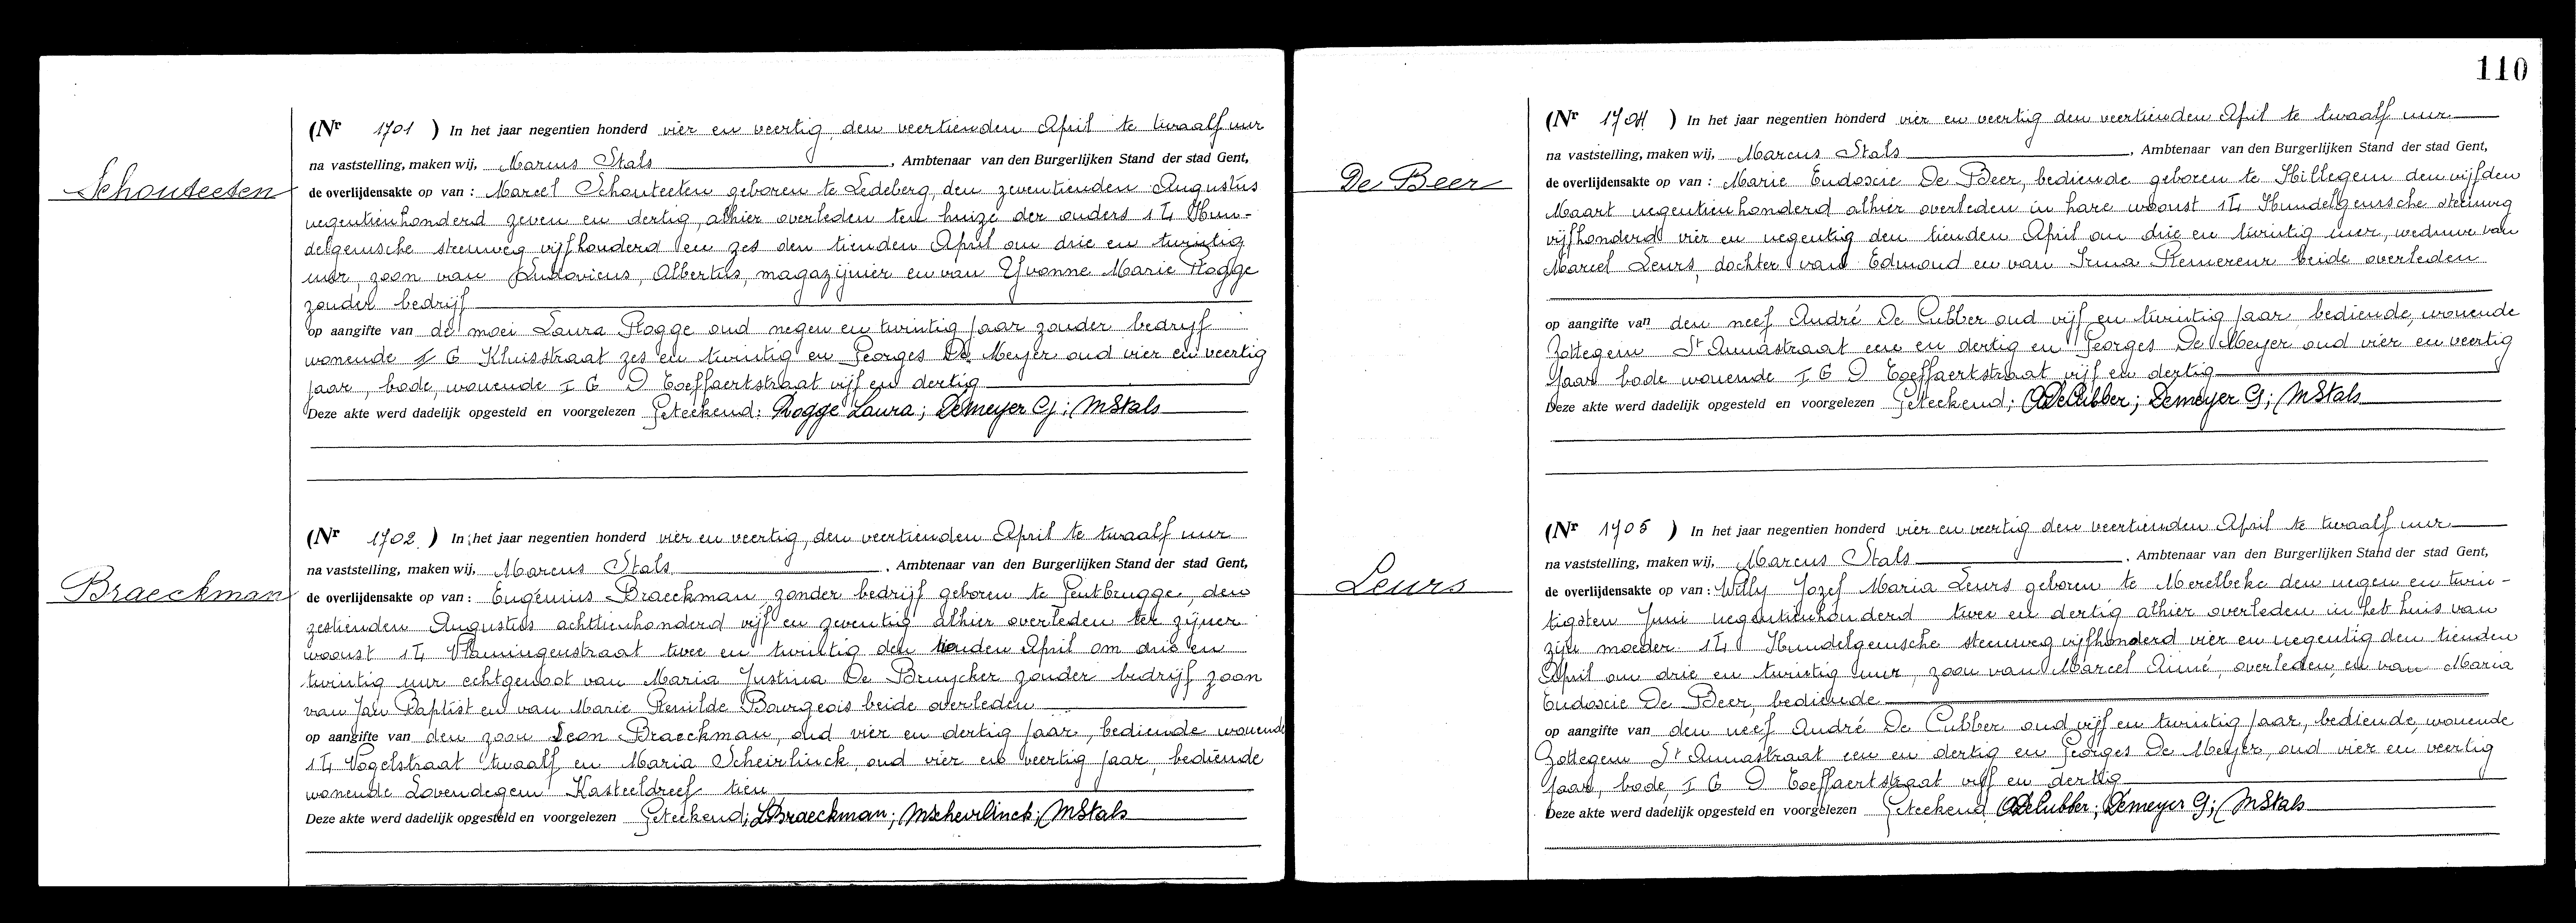 Schouteeten
(Nr 1701 ) In het jaar negentien honderd vier en veertig den veertienden April te twaalf uur
na vaststelling, maken wij, Marcus Stals , Ambtenaar van den Burgerlijken Stand der stad Gent,
de overlijdensakte op van : Marcel Schouteeten geboren te Ledeberg, den zeventienden Augustus
negentienhonderd zeven en dertig, alhier overleden ten huize der ouders Hun-
delgemsche steenweg vijfhonderd en zes den tienden April om drie en twintig
uur, zoon van Ludovicus, Albertus, magazijnier en van Yvonne Marie Rogge
zonder bedrijf
op aangifte van de moei Laura Rogge oud negen en twintig jaar zonder bedrijf
wonende G Kluisstraat zes en twintig en Georges De Meyer oud vier en veertig
jaar, bode, wonende I G D Toeffaertstraat vijf en dertig
Deze akte werd dadelijk opgesteld en voorgelezen Geteekend: Rogge Laura; Demeyer G; MStals
Braeckman
(Nr 1702 ) In het jaar negentien honderd vier en veertig, den veertienden April te twaalf uur
na vaststelling, maken wij, Marcus Stals , Ambtenaar van den Burgerlijken Stand der stad Gent,
de overlijdensakte op van : Eugénius Braeckman zonder bedrijf geboren te Gentbrugge, den
zestienden Augustus achttienhonderd vijf en zeventig alhier overleden ter zijner
woonst Vlamingenstraat twee en twintig den tienden April om drie en
twintig uur echtgenoot van Maria Justina De Bruycker zonder bedrijf zoon
van Jan Baptist en van Marie Renilde Bourgeois beide overleden
op aangifte van den zoon Leon Braeckman, oud vier en dertig jaar, bediende wonende
Vogelstraat twaalf en Maria Scheirlinck, oud vier en veertig jaar, bediende
wonende Lovendegem Kasteeldreef tien
Deze akte werd dadelijk opgesteld en voorgelezen Geteekend; LBraeckman; MScheirlinck; MStals
110
De Beer
(Nr 1704 ) In het jaar negentien honderd vier en veertig den veertienden April te twaalf uur
na vaststelling, maken wij, Marcus Stals , Ambtenaar van den Burgerlijken Stand der stad Gent,
de overlijdensakte op van : Marie Eudoxie De Beer, bediende geboren te Hillegem den vijfden
Maart negentienhonderd alhier overleden in hare woonst Hundelgemsche steenweg
vijfhonderd vier en negentig den tienden April om drie en twintig uur, weduwe van
Marcel Leurs, dochter van Edmond en van Irma Remereur beide overleden
op aangifte van den neef André De Cubber oud vijf en twintig jaar, bediende, wonende
Zottegem St Annastraat een en dertig en Georges De Meyer oud vier en veertig
jaar bode wonende I G D Toeffaertstraat vijf en dertig
Deze akte werd dadelijk opgesteld en voorgelezen Geteekend; ADeCubber; Demeyer G; MStals
Leurs
(Nr 1705 ) In het jaar negentien honderd vier en veertig den veertienden April te twaalf uur
na vaststelling, maken wij, Marcus Stals , Ambtenaar van den Burgerlijken Stand der stad Gent,
de overlijdensakte op van : Willy Jozef Maria Leurs geboren te Merelbeke den negen en twin-
tigsten Juni negentienhonderd twee en dertig alhier overleden in het huis van
zijn moeder Hundelgemsche steenweg vijfhonderd vier en negentig den tienden
April om drie en twintig uur, zoon van Marcel Aimé, overleden, en van Maria
Eudoxie De Beer, bediende
op aangifte van den neef André De Cubber oud vijf en twintig jaar, bediende, wonende
Zottegem St Annastraat een en dertig en Georges De Meyer, oud vier en veertig
jaar, bode, I G D Toeffaertstraat vijf en dertig
Deze akte werd dadelijk opgesteld en voorgelezen Geteekend ADeCubber; Demeyer G; MStals